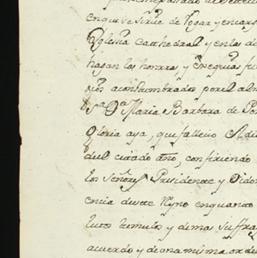 en que se sirve de rogar y encarg
Yglesia Cathedral y en las de
hagan las honrras y exequias fu
nes acostumbradas por el alm
Sra Da Maria Barbara de Por
gloria aya, que fallecio el dia
del citado año, confiriendo
los Señores Presidente y Oidor
encia de este Reyno en quanto
luto tumulo y demas sufra
acuerdo y de una misma orde